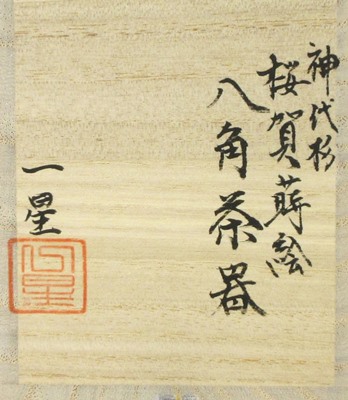 神代杉
桜賀蒔絵
八角茶器
一星